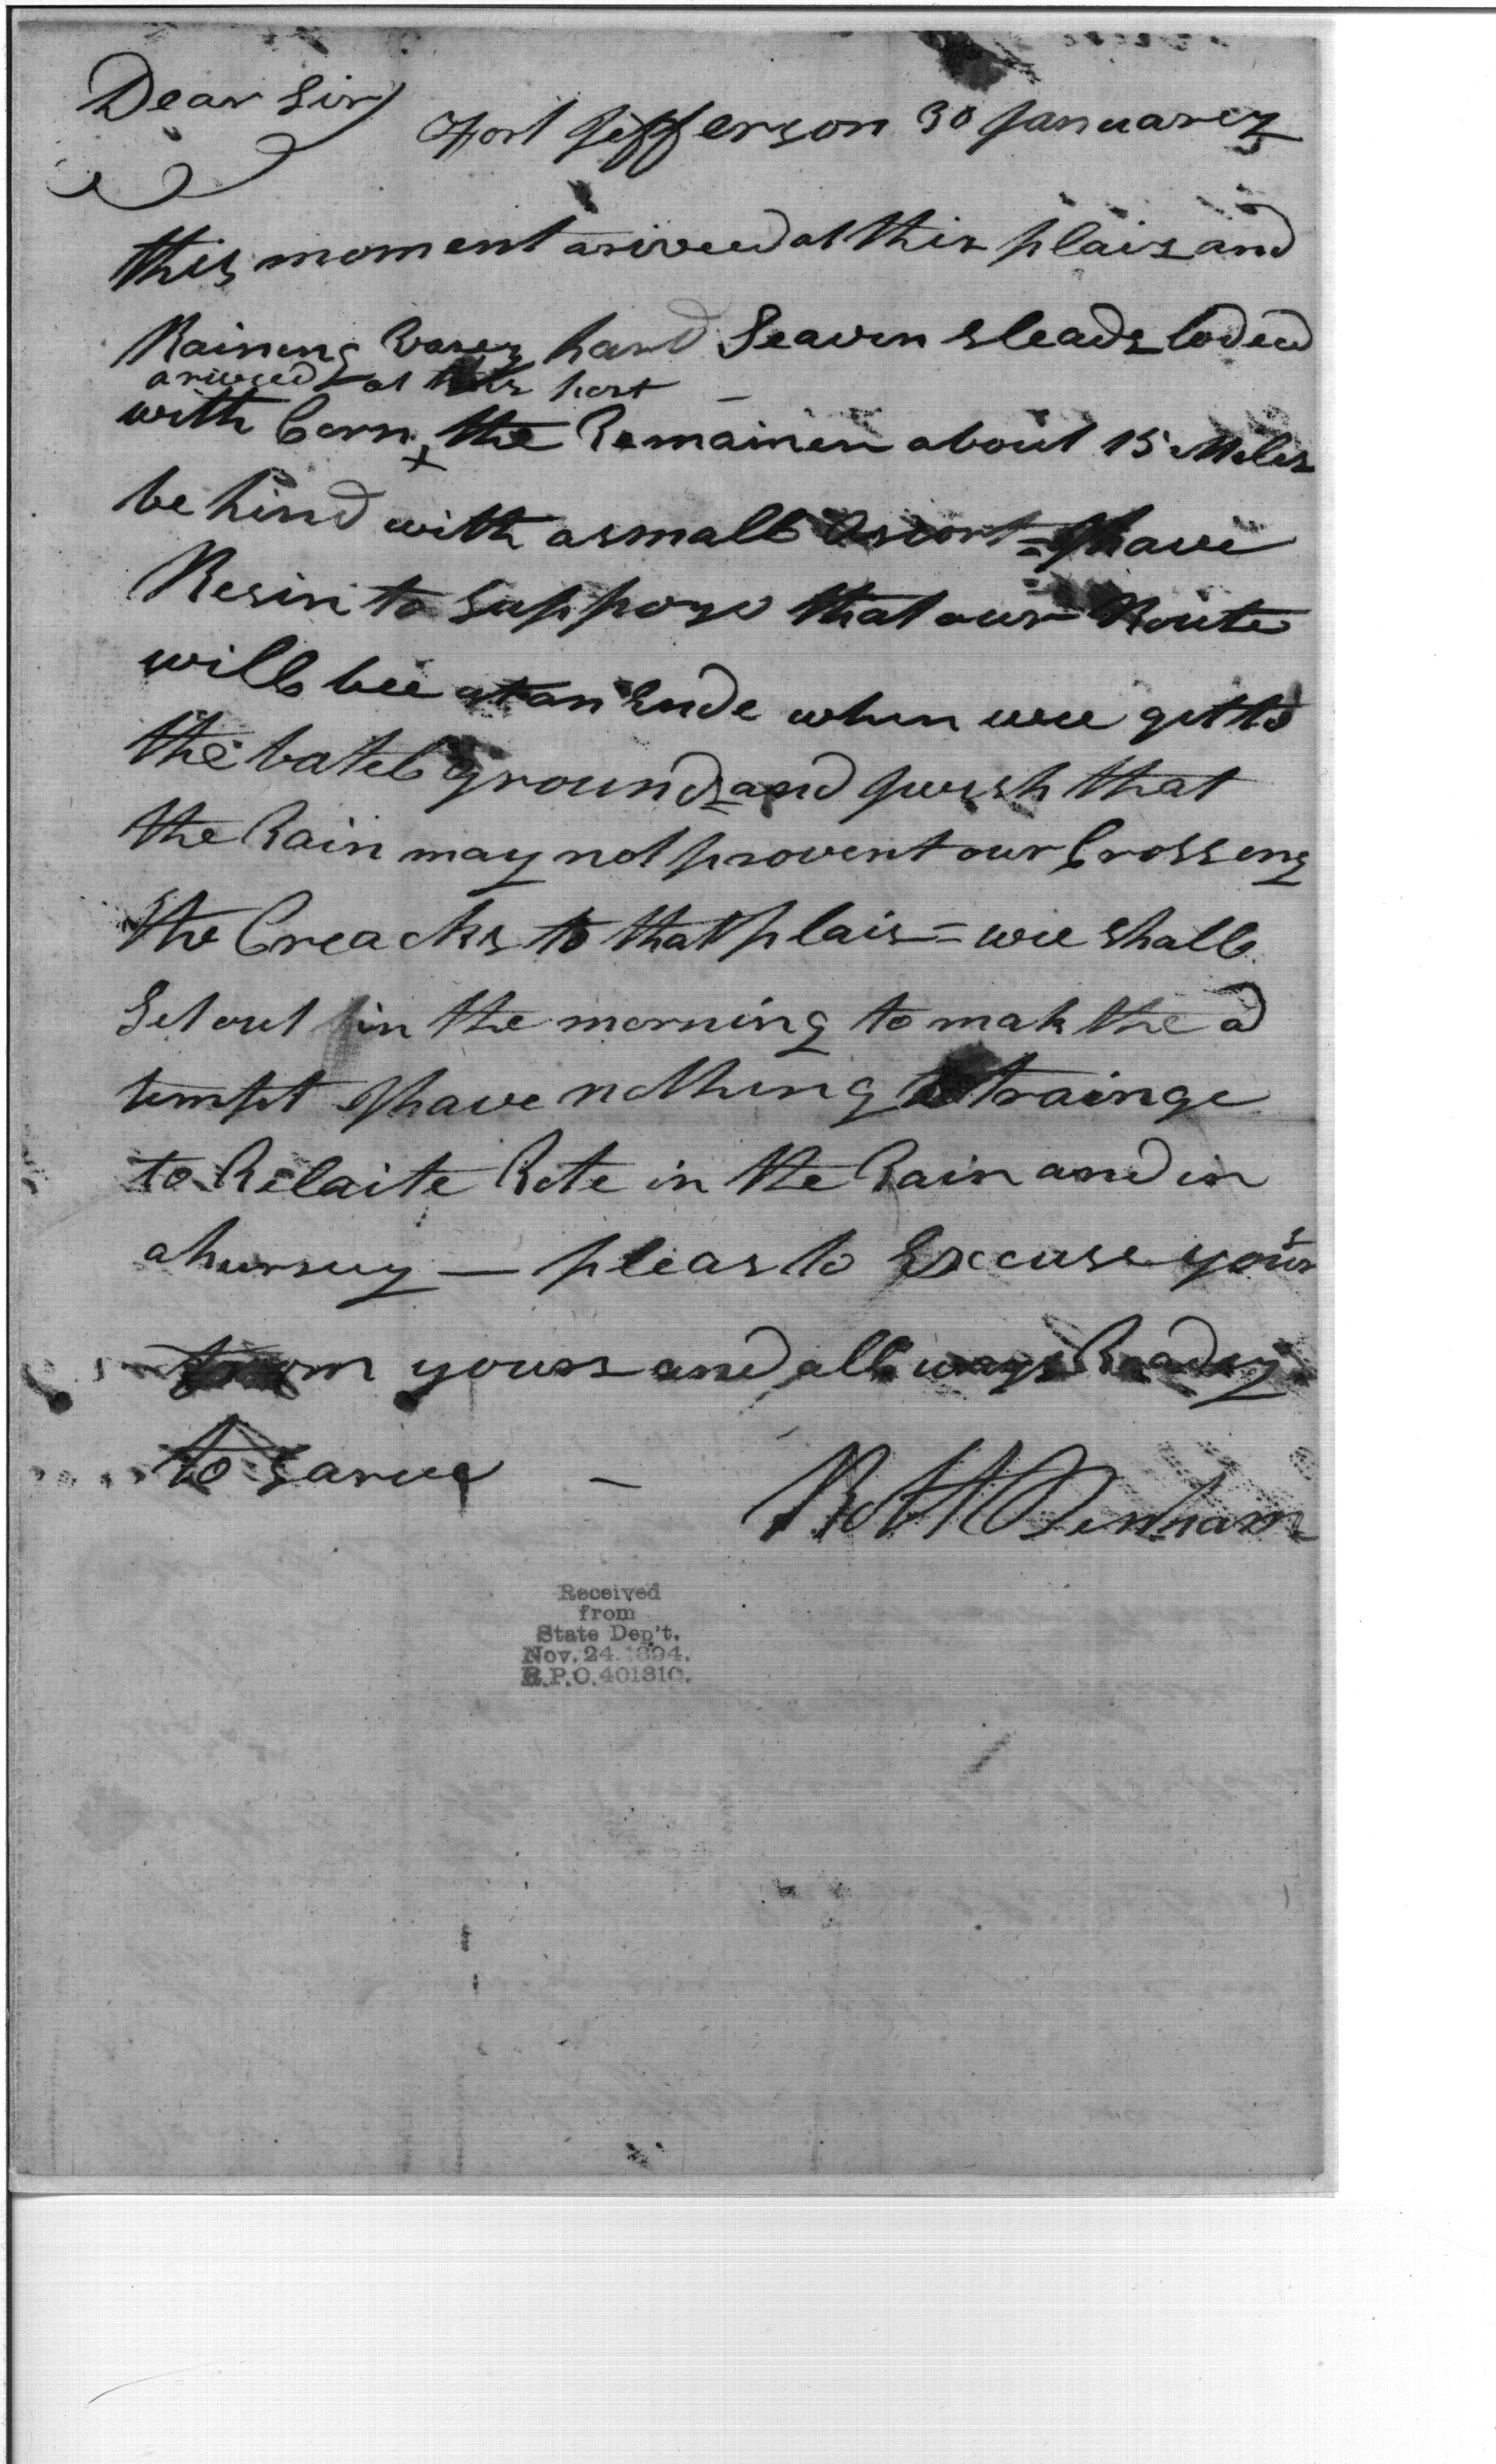 Dear Sir
Fort Jefferson 30 Januarey
this moment arived at this plais and
Raining varey hard Seaven sleads loded
arived at this post
with Corn x the Remainen about 15 Miles
be hind with a small Ascort = I have
Resin to suppose that our Route
will bee at an Ende when wee git to
the batel ground and I wish that
the Rain may not provent our Crosseng
the Creacks to that plais = wee shall
Set out in the morning to mak the a
tempt I have nothing strainge
to Relaite Rote in the Rain and in
a hurrey — pleas to Excuse yours
from yours and all ways Readey
to sarve — Robt Benham
Received
from
State Dep't.
Nov. 24 1894.
R.P.O. 401310.